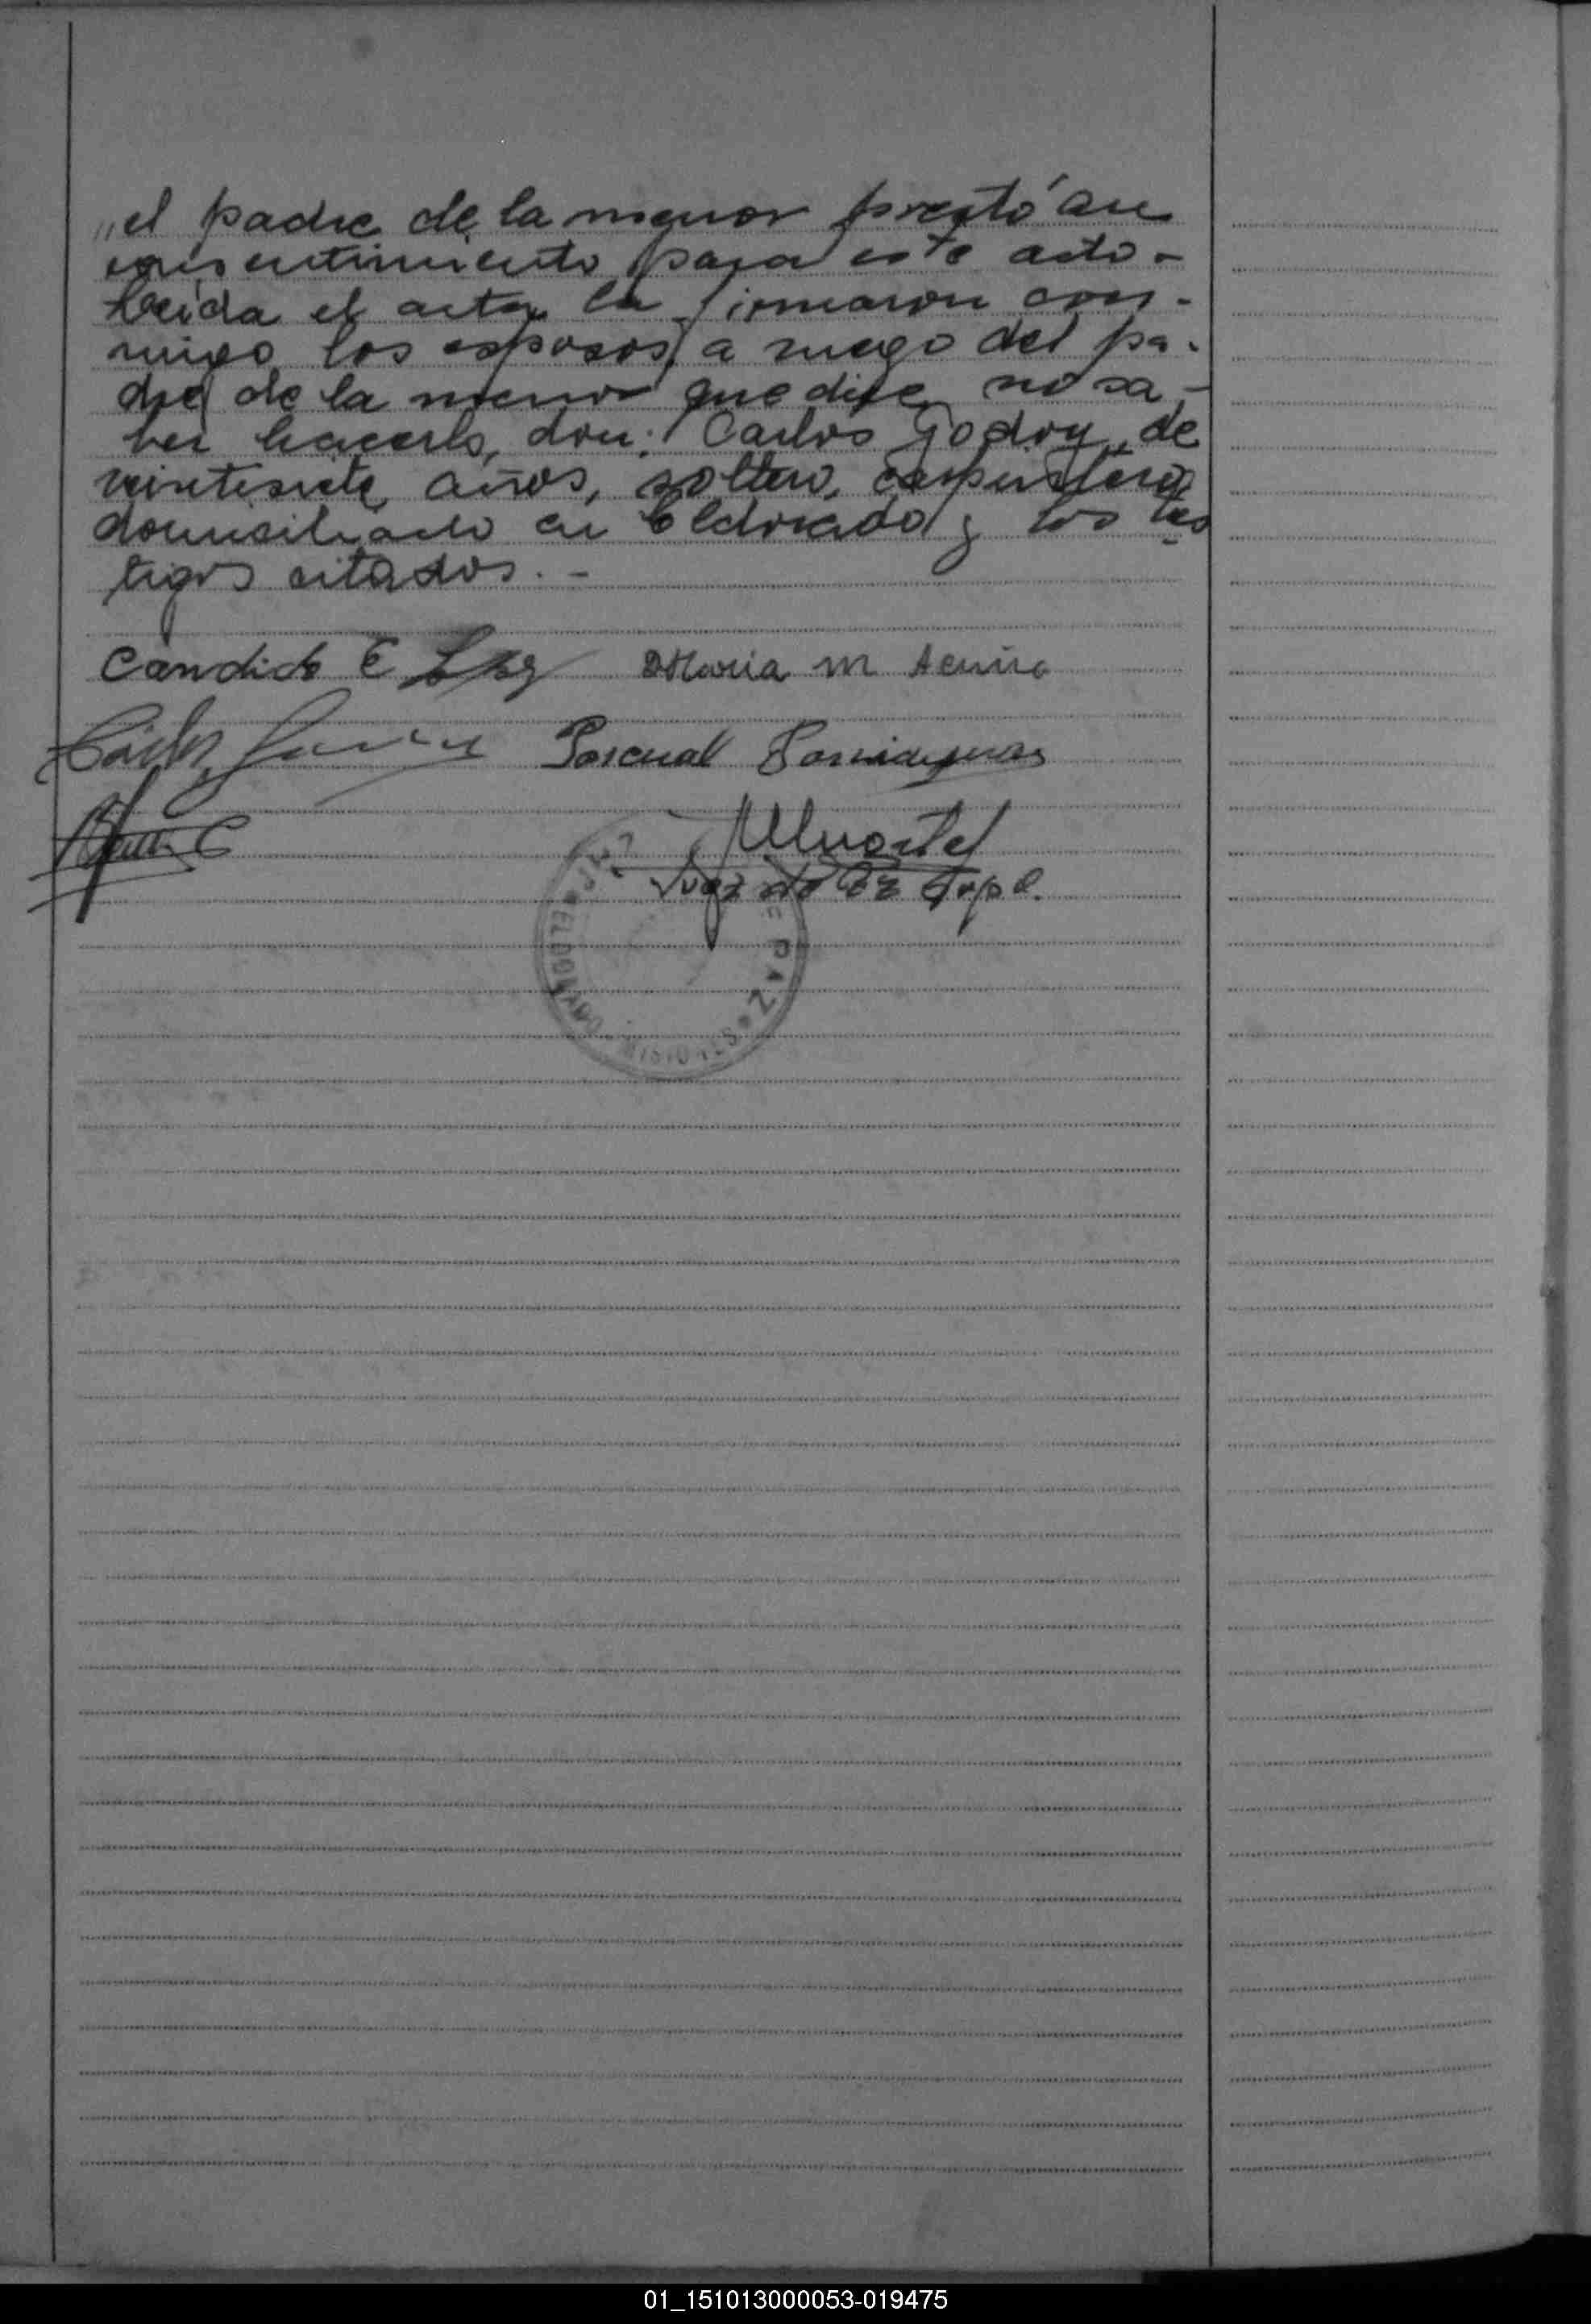 „el padre de la menor prestó su
consentimiento para este acto -
Leida el acta la firmaron con-
migo los esposos, a ruego del pa-
dre de la menor que dise no sa-
ber hacerlo, don: Carlos Godoy, de
veintesiete años, soltero, carpintero
domiciliado en Eldorado y los tes
tigos citados. -
Candido E Maria M Acuña
Carlos Pascual
Juez de Paz Supl.
ELDORADO MISIONES DE PAZ
01_151013000053-019475